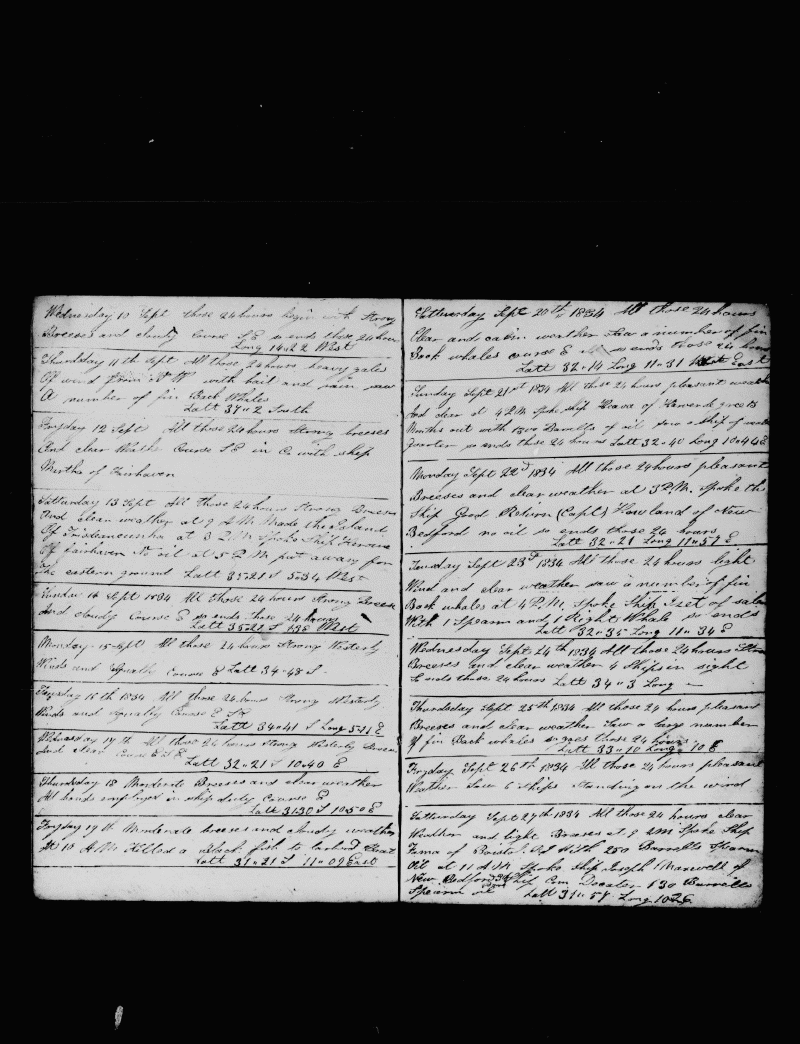 Wednesday 10 Sept those 24 hours begin with Strong
Breeses and cloudy Course S E so ends those 24 hours
Long 14..22 West
Thursday 11th Sept All those 24 hours heavy gales
Of wind from with hail and rain saw
A number of fin Back Whales
Latt 37..2 South
Fryday 12 Sept All those 24 hours Strong breeses
And clear Course S E in Co with ship
Martha of Fairhaven
Satturday 13 Sept All those 24 hours Strong Breeses
And clean weather at 9 A.M. Made the Island
Of at 3 P.M Spoke Ship
Of fairhaven oil at 5 P.M put away for
The eastern ground Latt 35..21 S 5..34 West
14 Sept 1834 All those 24 hours Strong Breeses
And cloudy Course E so ends these 24 hours
Latt 35..21 S West
Monday 15 Sept All those 24 hours Strong Westerly
Winds and Squally Course E Latt 34..48 S
16th 1834 All those 24 hours Strong Westerly
Winds and Squally Course E
Latt 34..41 S Long 5..11 E
Wednesday 17th All those 24 hours Strong Westerly Breeses
And clear Course
Latt 32..21 S 10..40 E
Thursday 18 Moderate Breeses and clear weather
All hands employed in ship duty Course E
Latt 31..30 S 10..50 E
Fryday 19th Moderate breeses and cloudy weather
At 10 A.M. Killed a Black fish to Boat
Latt 31..21 S 11..09 East
Satturday Sept 20th 1834 All those 24 hours
Clear and weather saw a number of fin
Back whales course E so ends those 24 hours
Latt 32..14 Long 11..31 East
Sunday Sept 21st 1834 All those 24 hours pleasant weather
And clear at 4 P.M Spoke ship of
Months out with 1300 Barrells of oil saw a ship
so ends these 24 hours Latt 32..40 Long 10..44 E
Monday Sept 22d 1834 All those 24 hours pleasant
Breeses and clear weather at 3 P.M. Spoke the
Ship Good Return (Capt) Howland of New
Bedford no oil so ends those 24 hours
Latt 32..21 Long 11..57 E
Tuesday Sept 23d 1834 All those 24 hours light
Wind and clear weather saw a number of fin
Back whales at 4 P.M. Spoke Ship
With 1 Spearm and 1 Right Whale so ends
Latt 32..35 Long 11..34 E
Wednesday Sept 24th 1834 All those 24 hours
Breeses and clear weather 4 Ships in sight
So ends those 24 hours Latt 34..3 Long
Thursday Sept 25th 1834 All those 24 hours pleasant
Breeses and clear weather Saw a larg number
Of fin Back whales so goes those 24 hours
Latt 33..10 Long 10 E
Fryday Sept 26th 1834 All those 24 hours pleasant
Weather Saw 6 Ships Standing on the wind
Satturday Sept 27th 1834 All those 24 hours clear
Weather and light Breeses at 9 AM Spoke Ship
of with 250 Barrells Spearm
Oil at 11 A.M. Spoke Ship Joseph Maxwell of
New Bedford Ship 630 Barrells
Spearm oil Latt 31..57 Long